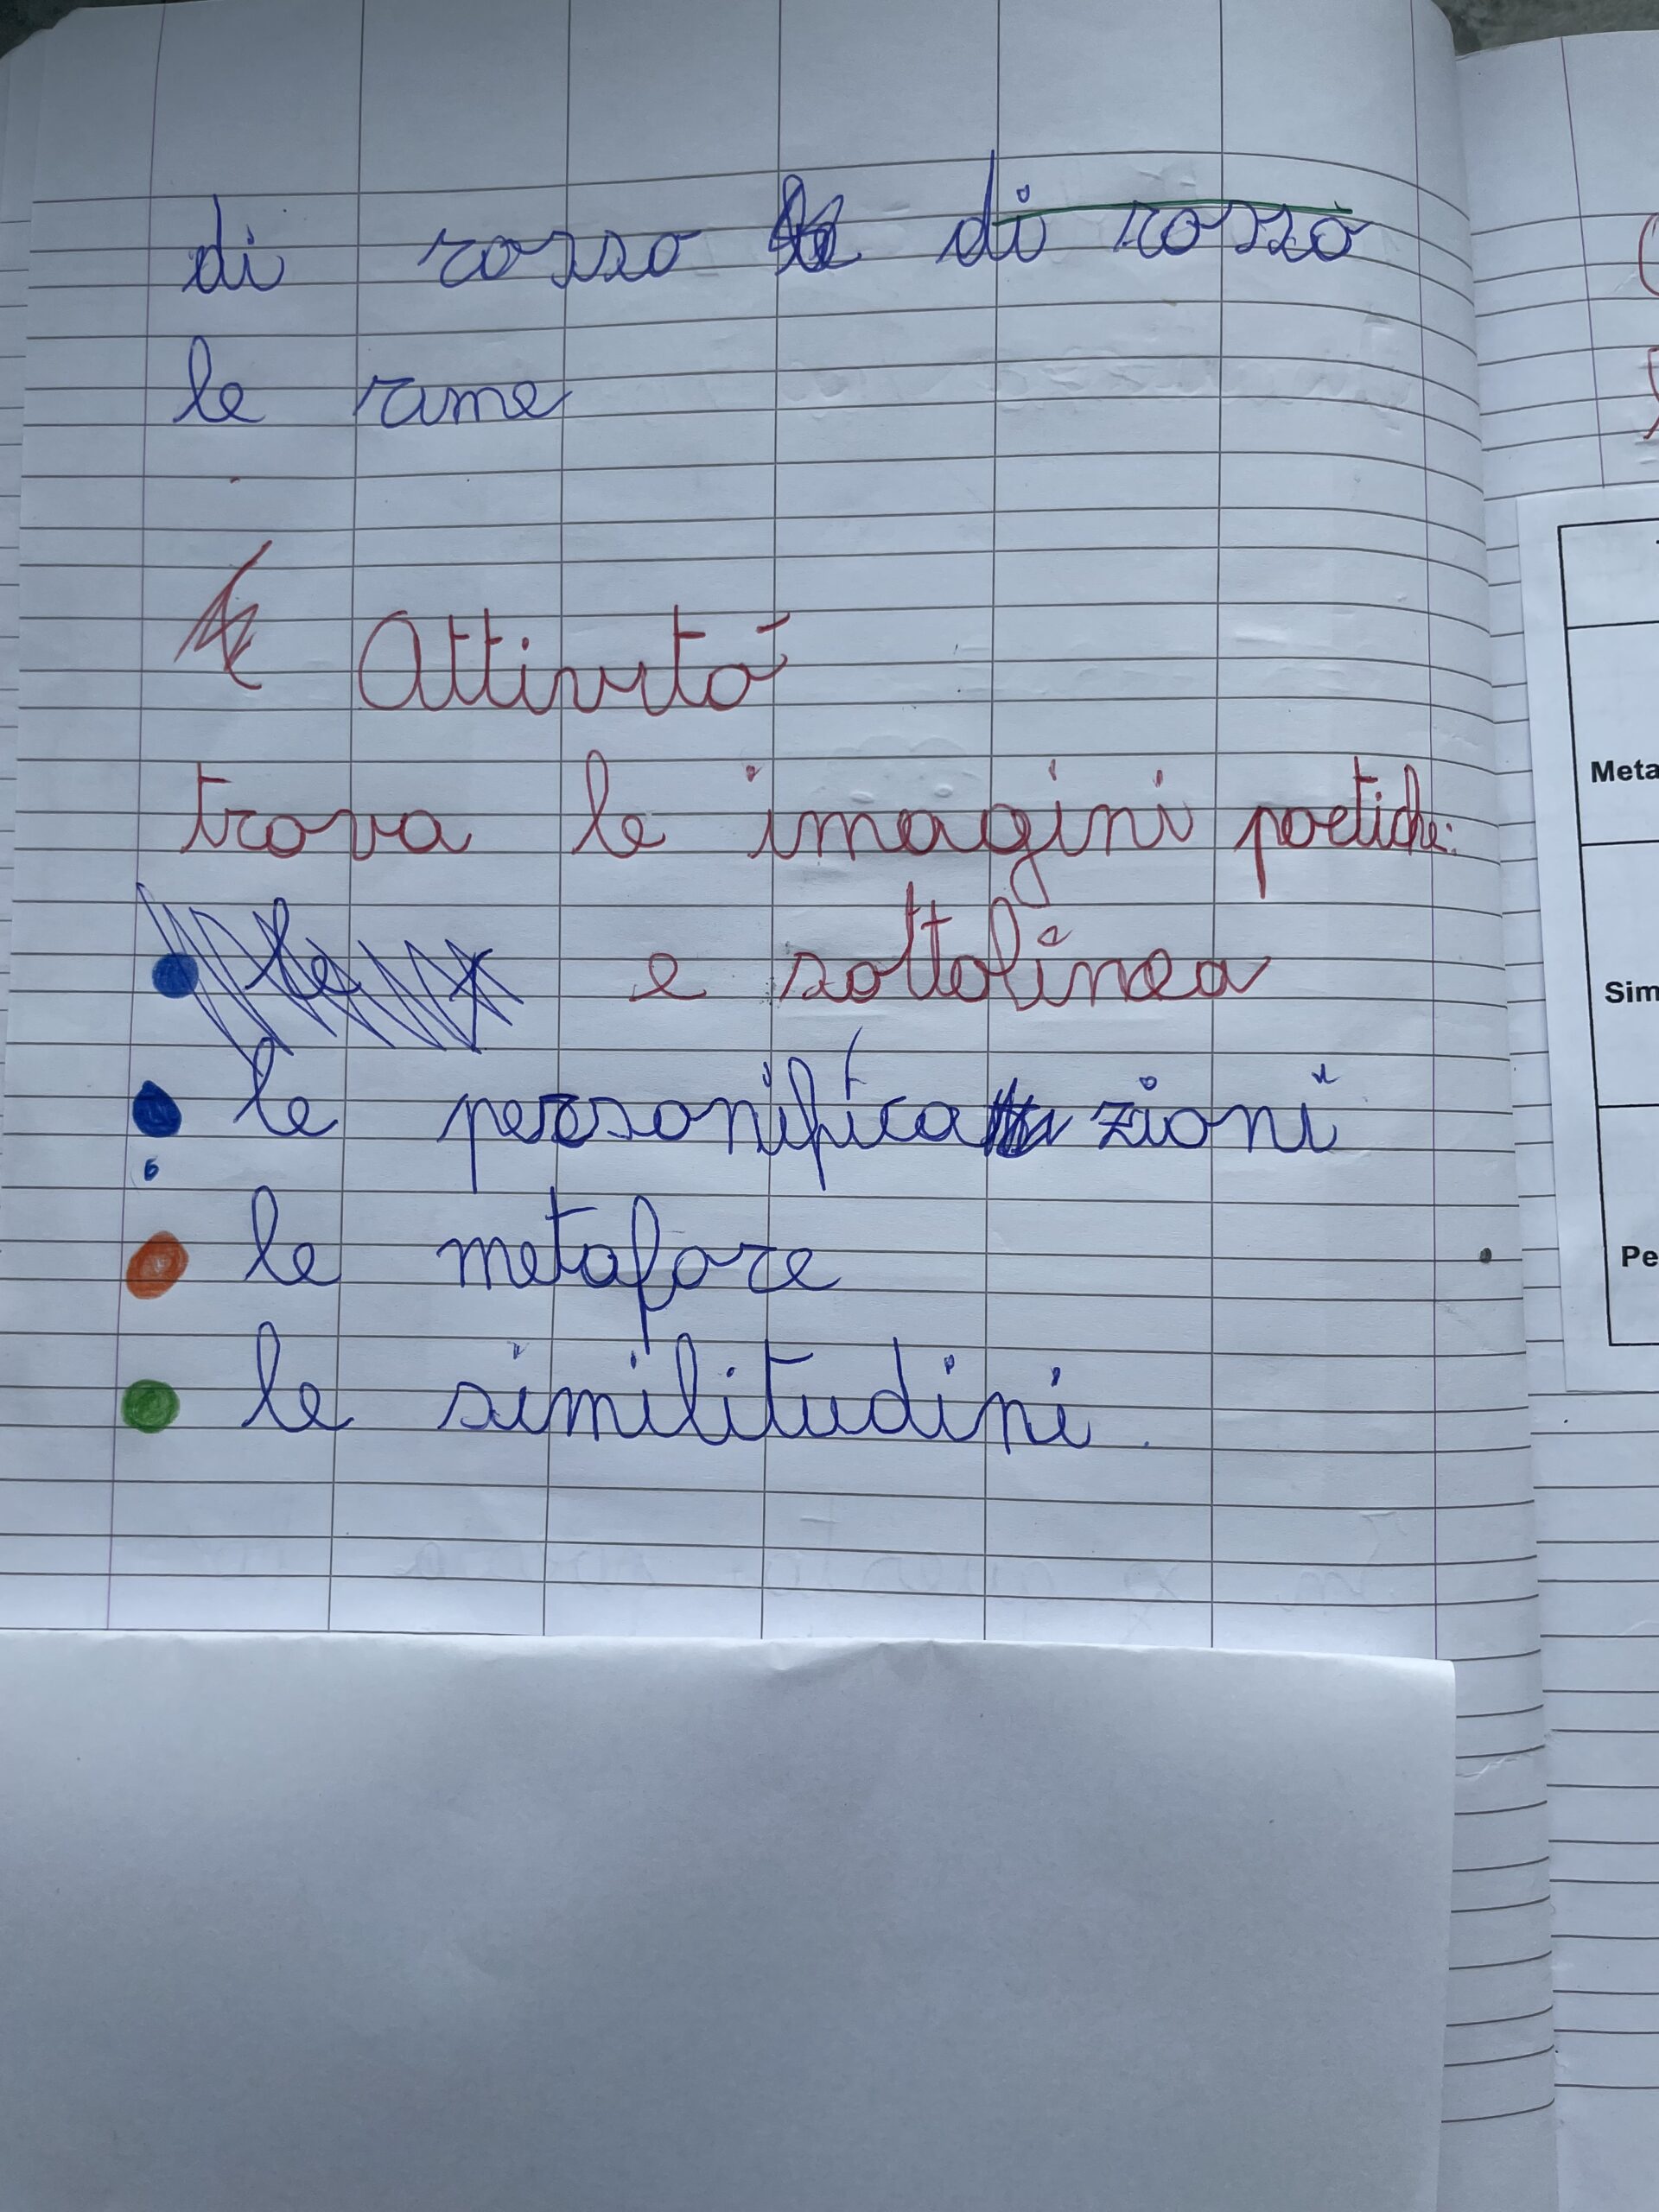 di rosso di rosso
le rame
Attività
trova le imagini poetiche:
e sottolinea
le personificazioni
le metafore
le similitudini.
Meta
Sim
Pe